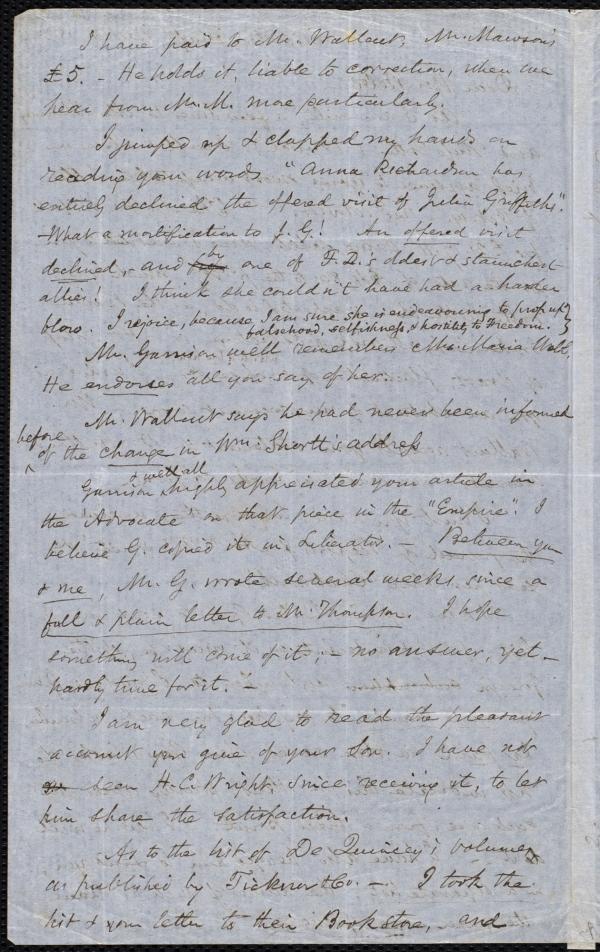 I have paid to Mr. Wallcut, Mr. Mawson's
£5. - He holds it, liable to correction, when we
hear from Mr. M. more particularly.
I jumped up & clapped my hands on
reading your words, "Anna Richardson has
entirely declined the offered visit of Julia Griffiths".
-What a mortification to J. G.! An offered visit
declined, - and by one of F. D.'s oldest & staunchest
allies! I think she couldn't have had a harder
blow. I rejoice, because I am sure she is endeavouring to prop up
falsehood, selfishness, & hostility to Freedom.
Mr. Garrison well remembers Mrs. Maria Webb,
He endorses all you say of her.
Mr. Wallcut says he had never been informed
before
of the change in Wm. Shortt's address
& we all
Garrison highly appreciated your article in
the 'Advocate' on that piece in the "Empire". I
believe G. copied it in Liberator. - Between you
& me, Mr. G. wrote several weeks since a
full & plain letter to Mr. Thompson. I hope
something will come of it; - no answer, yet -
hardly time for it. -
I am very glad to read the pleasant
account you give of your Son. I have not
seen H. C. Wright since receiving it, to let
him share the satisfaction.
As to the list of De Quincey's volumes
as published by Ticknor & Co. - I took the
list & your letter to their Bookstore, and